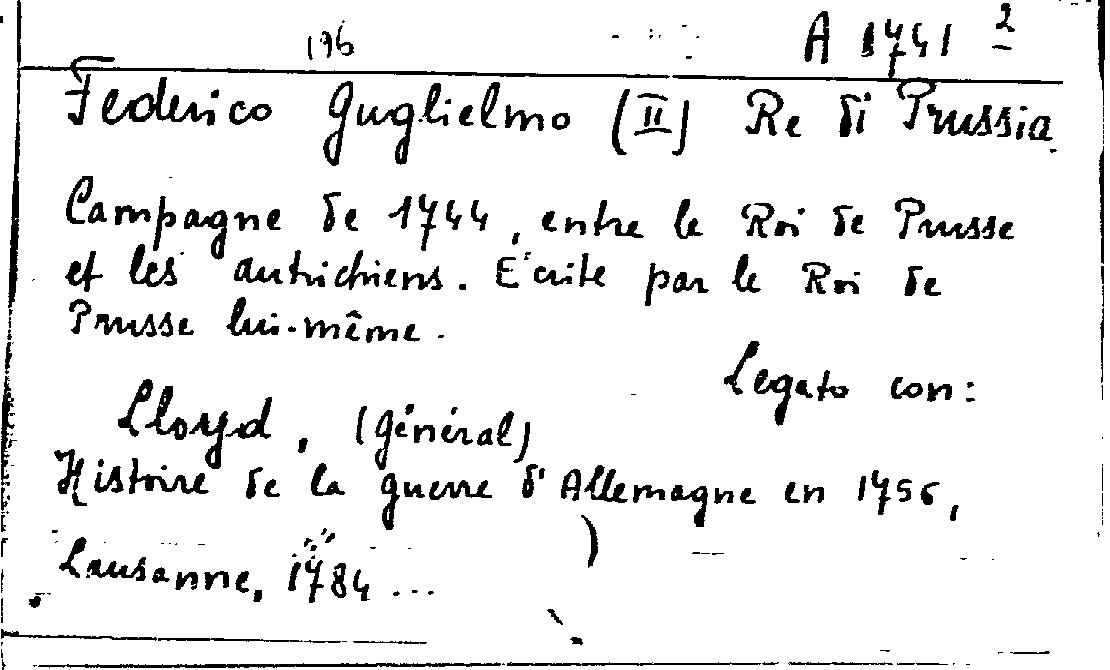 196
A 1741 2
Federico Guglielmo (II) Re di Prussia
Campagne de 1744, entre le Roi de Prusse
et les autrichiens. Ecrite par le Roi de
Prusse lui-même.
Legato con:
Lloyd, (général)
Histoire de la guerre d'Allemagne en 1756,
Lausanne, 1784 ...